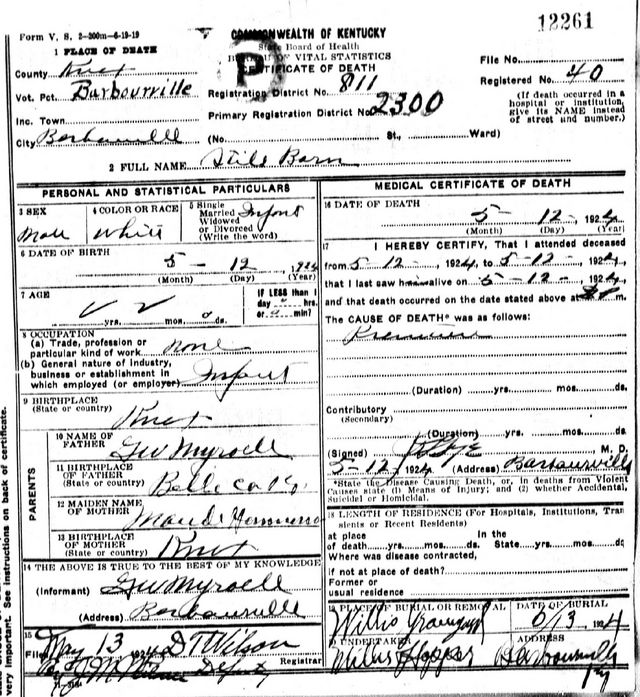 12261
Form V. S. 2-300m-6-19-19
COMMONWEALTH OF KENTUCKY
State Board of Health
BUREAU OF VITAL STATISTICS
CERTIFICATE OF DEATH
1 PLACE OF DEATH
County Knox
Vot. Pct. Barbourville
Inc. Town
City Barbourville
Registration District No. 811
Primary Registration District No. 2300
(No. St., Ward)
File No.
Registered No. 40
(If death occurred in a
hospital or institution,
give its NAME instead
of street and number.)
2 FULL NAME Still Born
PERSONAL AND STATISTICAL PARTICULARS
3 SEX
Male
4 COLOR OR RACE
White
5 Single
Married
Widowed
or Divorced
(Write the word)
Infant
6 DATE OF BIRTH
5 - 12 , 1924
(Month) (Day) (Year)
7 AGE
yrs. mos. ds.
IF LESS than 1
day hrs.
or min?
8 OCCUPATION
(a) Trade, profession or
particular kind of work none
(b) General nature of industry,
business or establishment in
which employed (or employer) Infant
9 BIRTHPLACE
(State or country)
Knox
PARENTS
10 NAME OF
FATHER
11 BIRTHPLACE
OF FATHER
(State or country)
Bell Co Ky.
12 MAIDEN NAME
OF MOTHER
Maud
13 BIRTHPLACE
OF MOTHER
(State or country)
Knox
14 THE ABOVE IS TRUE TO THE BEST OF MY KNOWLEDGE
(Informant)
(Address) Barbourville
15
Filed May 13 1924 D T Wilson
Registrar
Deputy
MEDICAL CERTIFICATE OF DEATH
16 DATE OF DEATH
5 - 12 - , 1924
(Month) (Day) (Year)
17 I HEREBY CERTIFY, That I attended deceased
from 5 - 12 - , 1924, to 5 - 12 - , 1924,
that I last saw him alive on 5 - 12 - , 1924,
and that death occurred on the date stated above at m.
The CAUSE OF DEATH* was as follows:
(Duration) yrs. mos. ds.
Contributory
(Secondary)
(Duration) yrs. mos. ds.
(Signed) M. D.
5-12, 1924 (Address) Barbourville
*State the Disease Causing Death, or, in deaths from Violent
Causes state (1) Means of Injury; and (2) whether Accidental,
Suicidal or Homicidal.
18 LENGTH OF RESIDENCE (For Hospitals, Institutions, Tran
sients or Recent Residents)
at place In the
of death yrs. mos. ds. State yrs. mos. ds.
Where was disease contracted,
if not at place of death?
Former or
usual residence
19 PLACE OF BURIAL OR REMOVAL
Willis
DATE OF BURIAL
1924
20 UNDERTAKER
Hopper
ADDRESS
Barbourville
Ky
very important. See instructions on back of certificate.